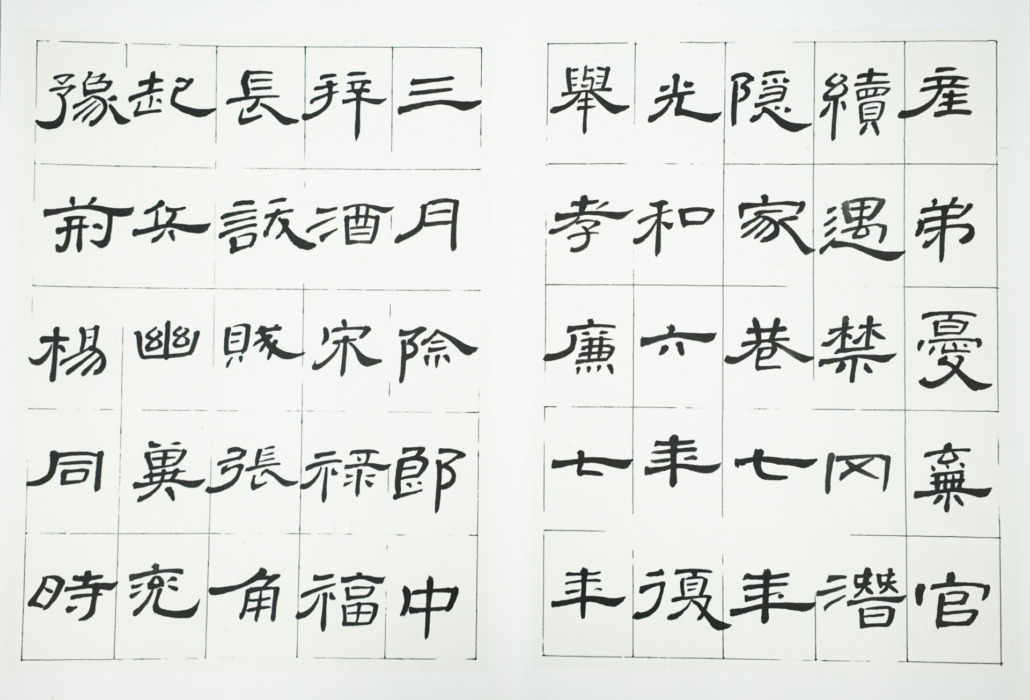 產弟憂棄官
續遇禁冈潛
隱家巷七年
光和六年復
舉孝廉七年
三月除郎中
拜酒宋祿福
長訞賊張角
起兵幽冀兗
豫荊楊同時